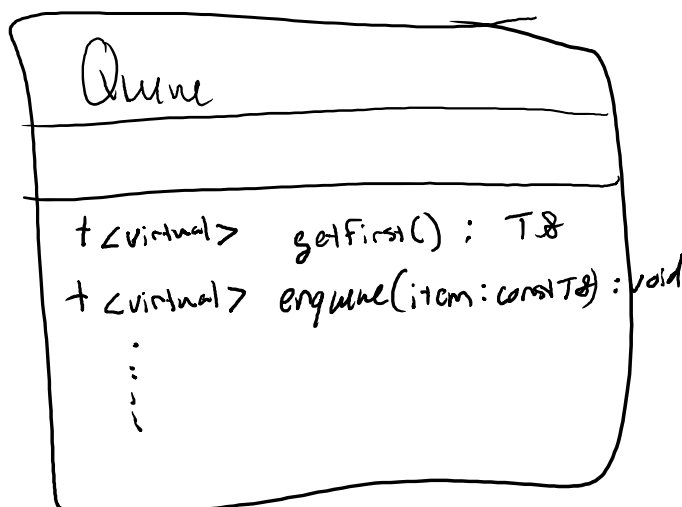 Queue
+ <virtual> getFirst() : T&
+ <virtual> enqueue(item: const T&) : void